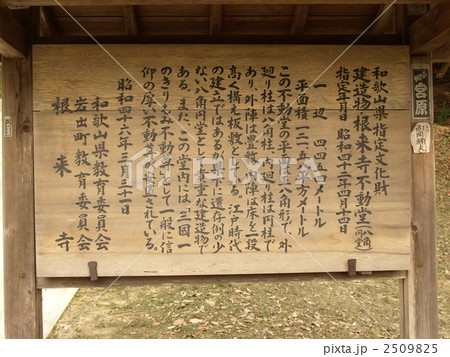 和歌山県指定文化財
建造物 根来寺不動堂（八角円堂）
指定年月日 昭和四十三年四月十四日
一辺 四・四四メートル
平面積 一三一・五八平方メートル
この不動堂の平面は八角形で、外
廻り柱は八角柱、内廻り柱は円柱で
あり、外陣は畳敷、内陣は床を一段
高く構え板敷としている。江戸時代
の建立ではあるが県下に遺存例の少
ない八角円堂として貴重な建造物で
ある。またこの堂内には、三國一
のきりもみ不動尊として一般に信
仰の厚い不動尊が安置されている。
昭和四十六年三月三十一日
和歌山県教育委員会
岩出町教育委員会
根来寺
宮原
pixta
pixta.jp - 2509825